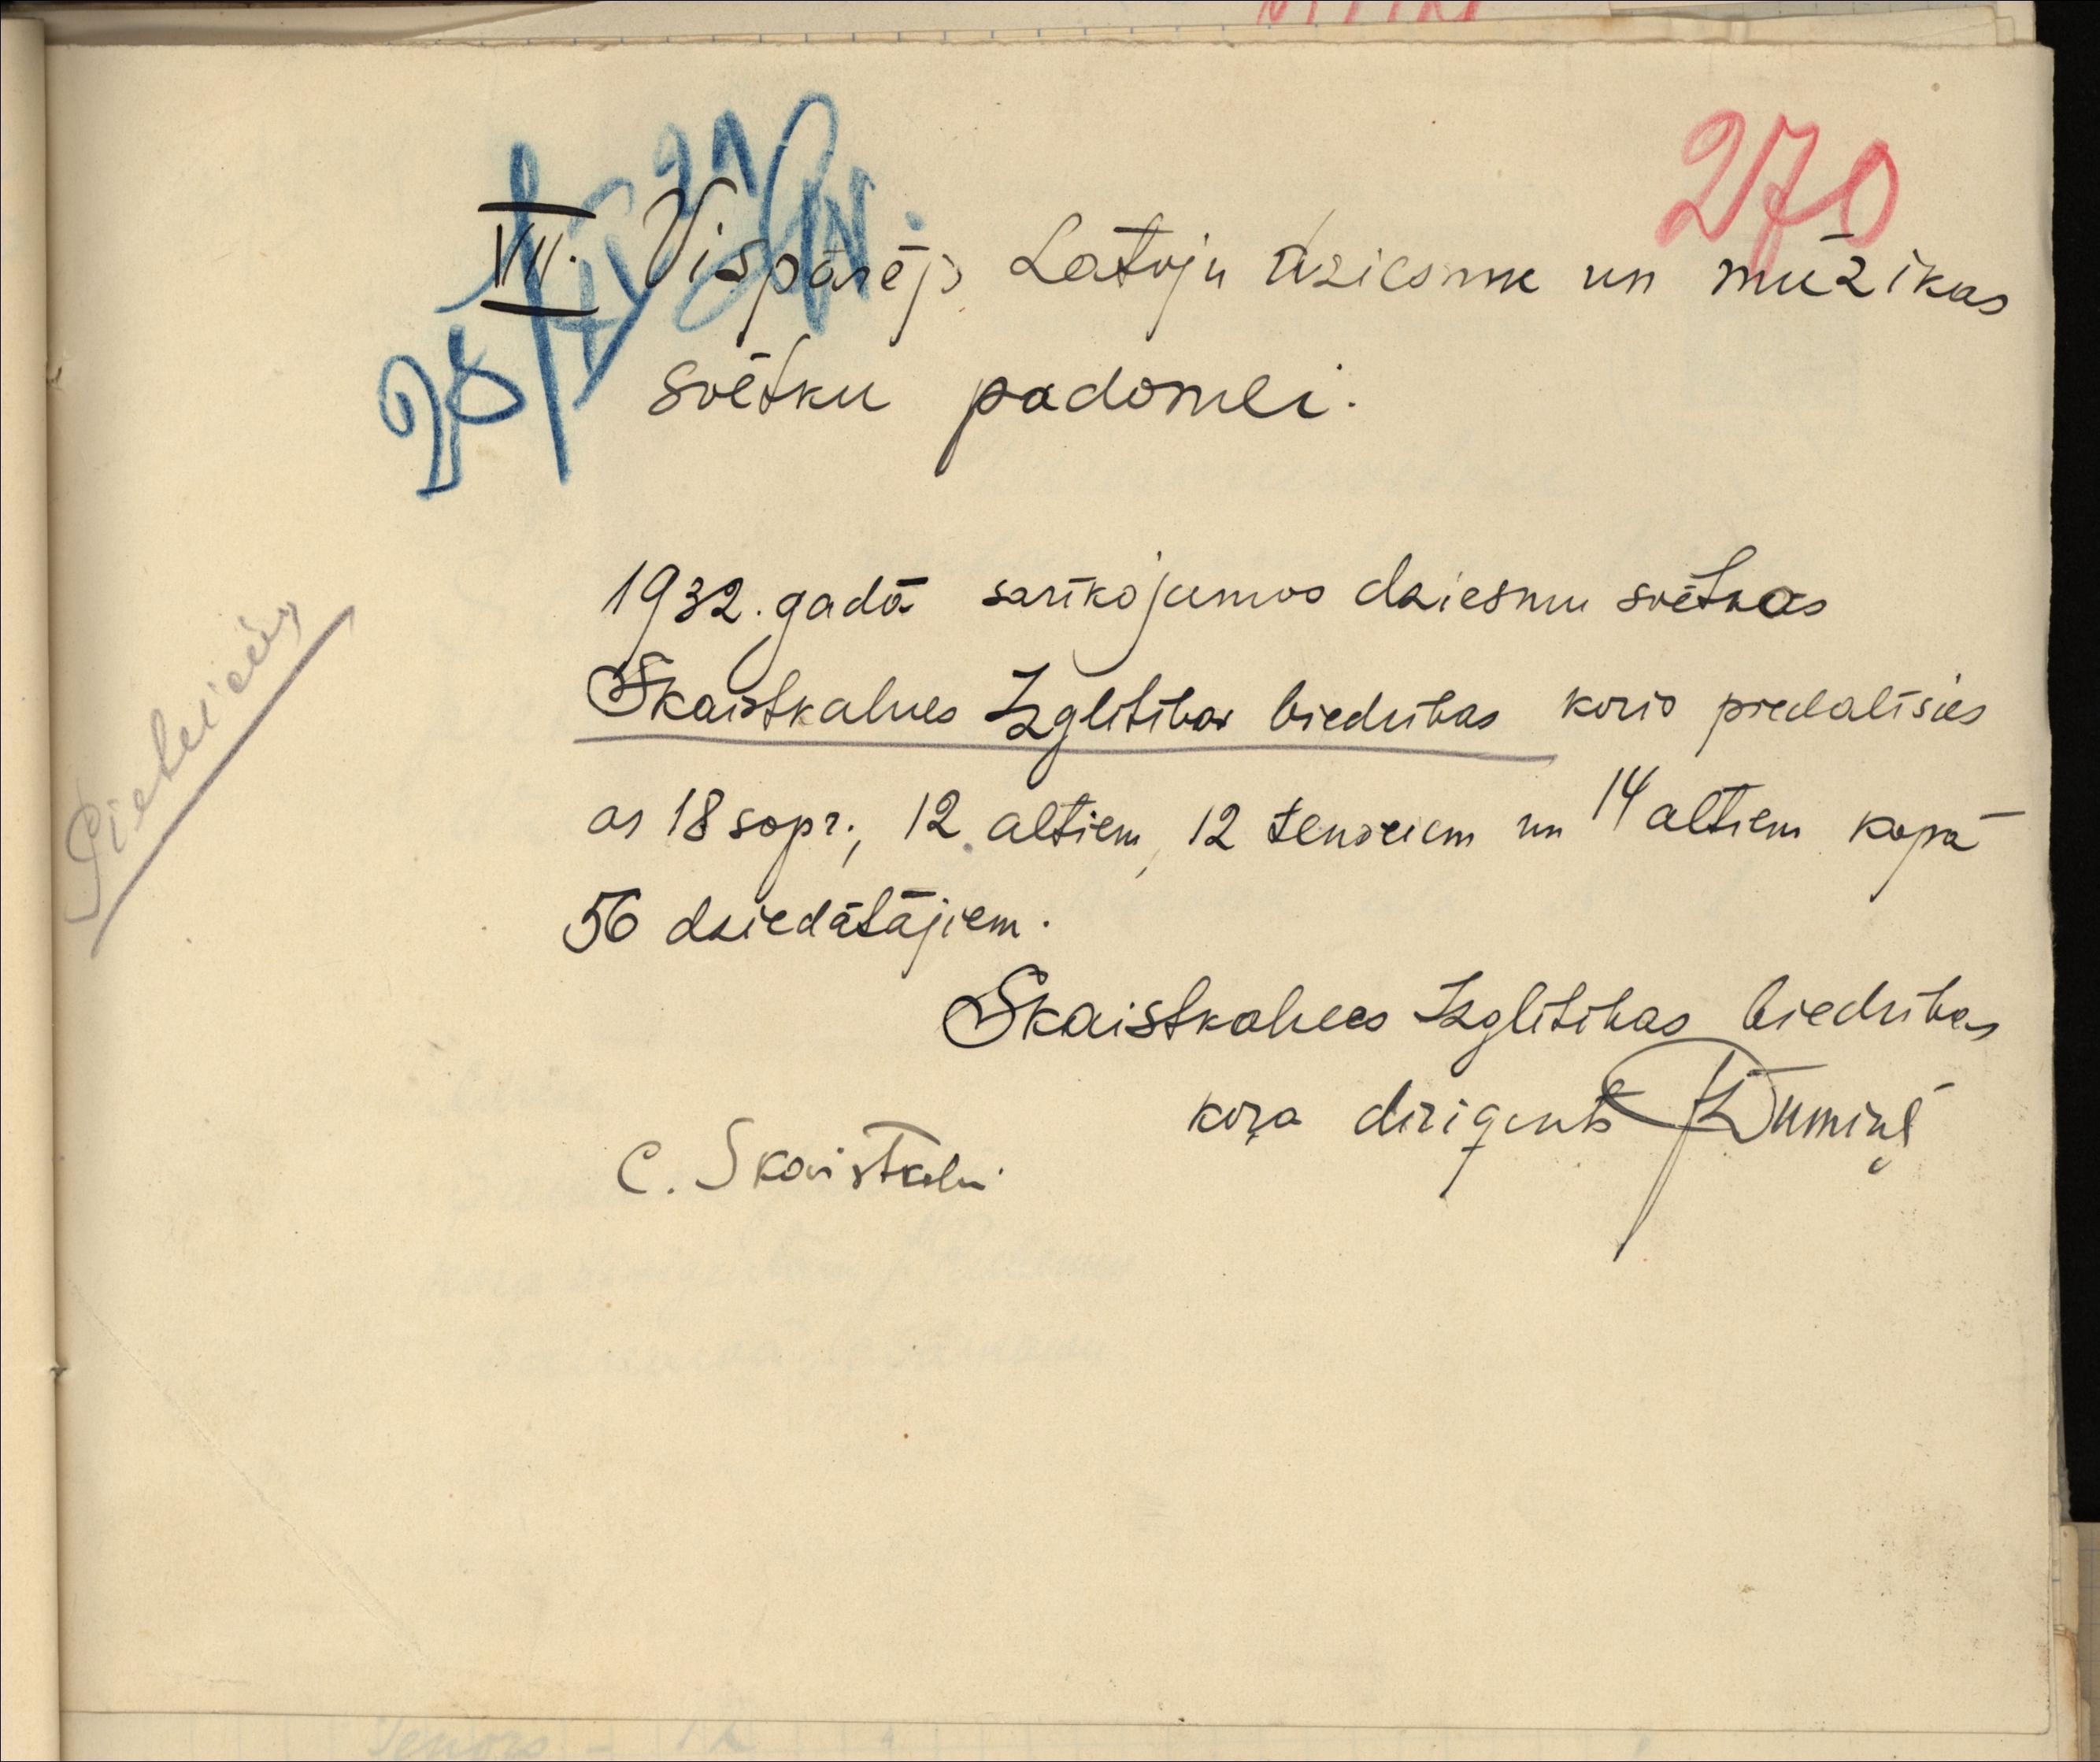 270
VII. Vispārējo Latvju dziesmu un mūzikas
svētku padomei.
1932. gadā sarīkojamos dziesmu svētkos
Skaistkalnes Izglītības biedrības koris piedalīsies
ar 18 sopr., 12 altiem, 12 tenoriem un 14 altiem kopā
56 dziedātājiem.
Skaistkalnes Izglītības biedrības
kora diriģents Dumiņš
C. Skaistkalnē